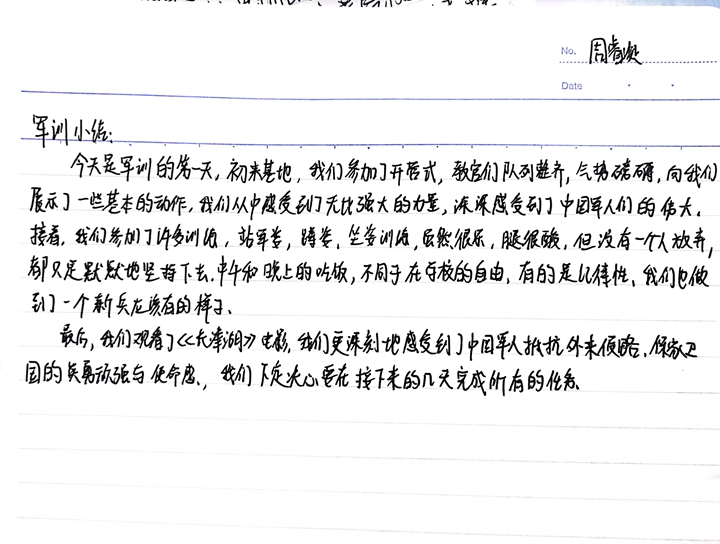 No. 周睿
Date
军训小结:
今天是军训的第一天,初来基地,我们参加了开营式,教官们队列整齐,气势磅礴,向我们
展示了一些基本的动作,我们从中感受到了无比强大的力量,深深感受到了中国军人们的伟大。
接着,我们参加了许多训练,站军姿,蹲姿,坐姿训练,虽然很累,腿很酸,但没有一个人放弃,
都只是默默地坚持下去.中午和晚上的吃饭,不同于在学校的自由,有的是纪律性,我们也做
到了一个新兵应该有的样子.
最后,我们观看了《长津湖》电影,我们更深刻地感受到了中国军人抵抗外来侵略、保家卫
国的英勇顽强与使命感,我们下定决心要在接下来的几天完成所有的任务.